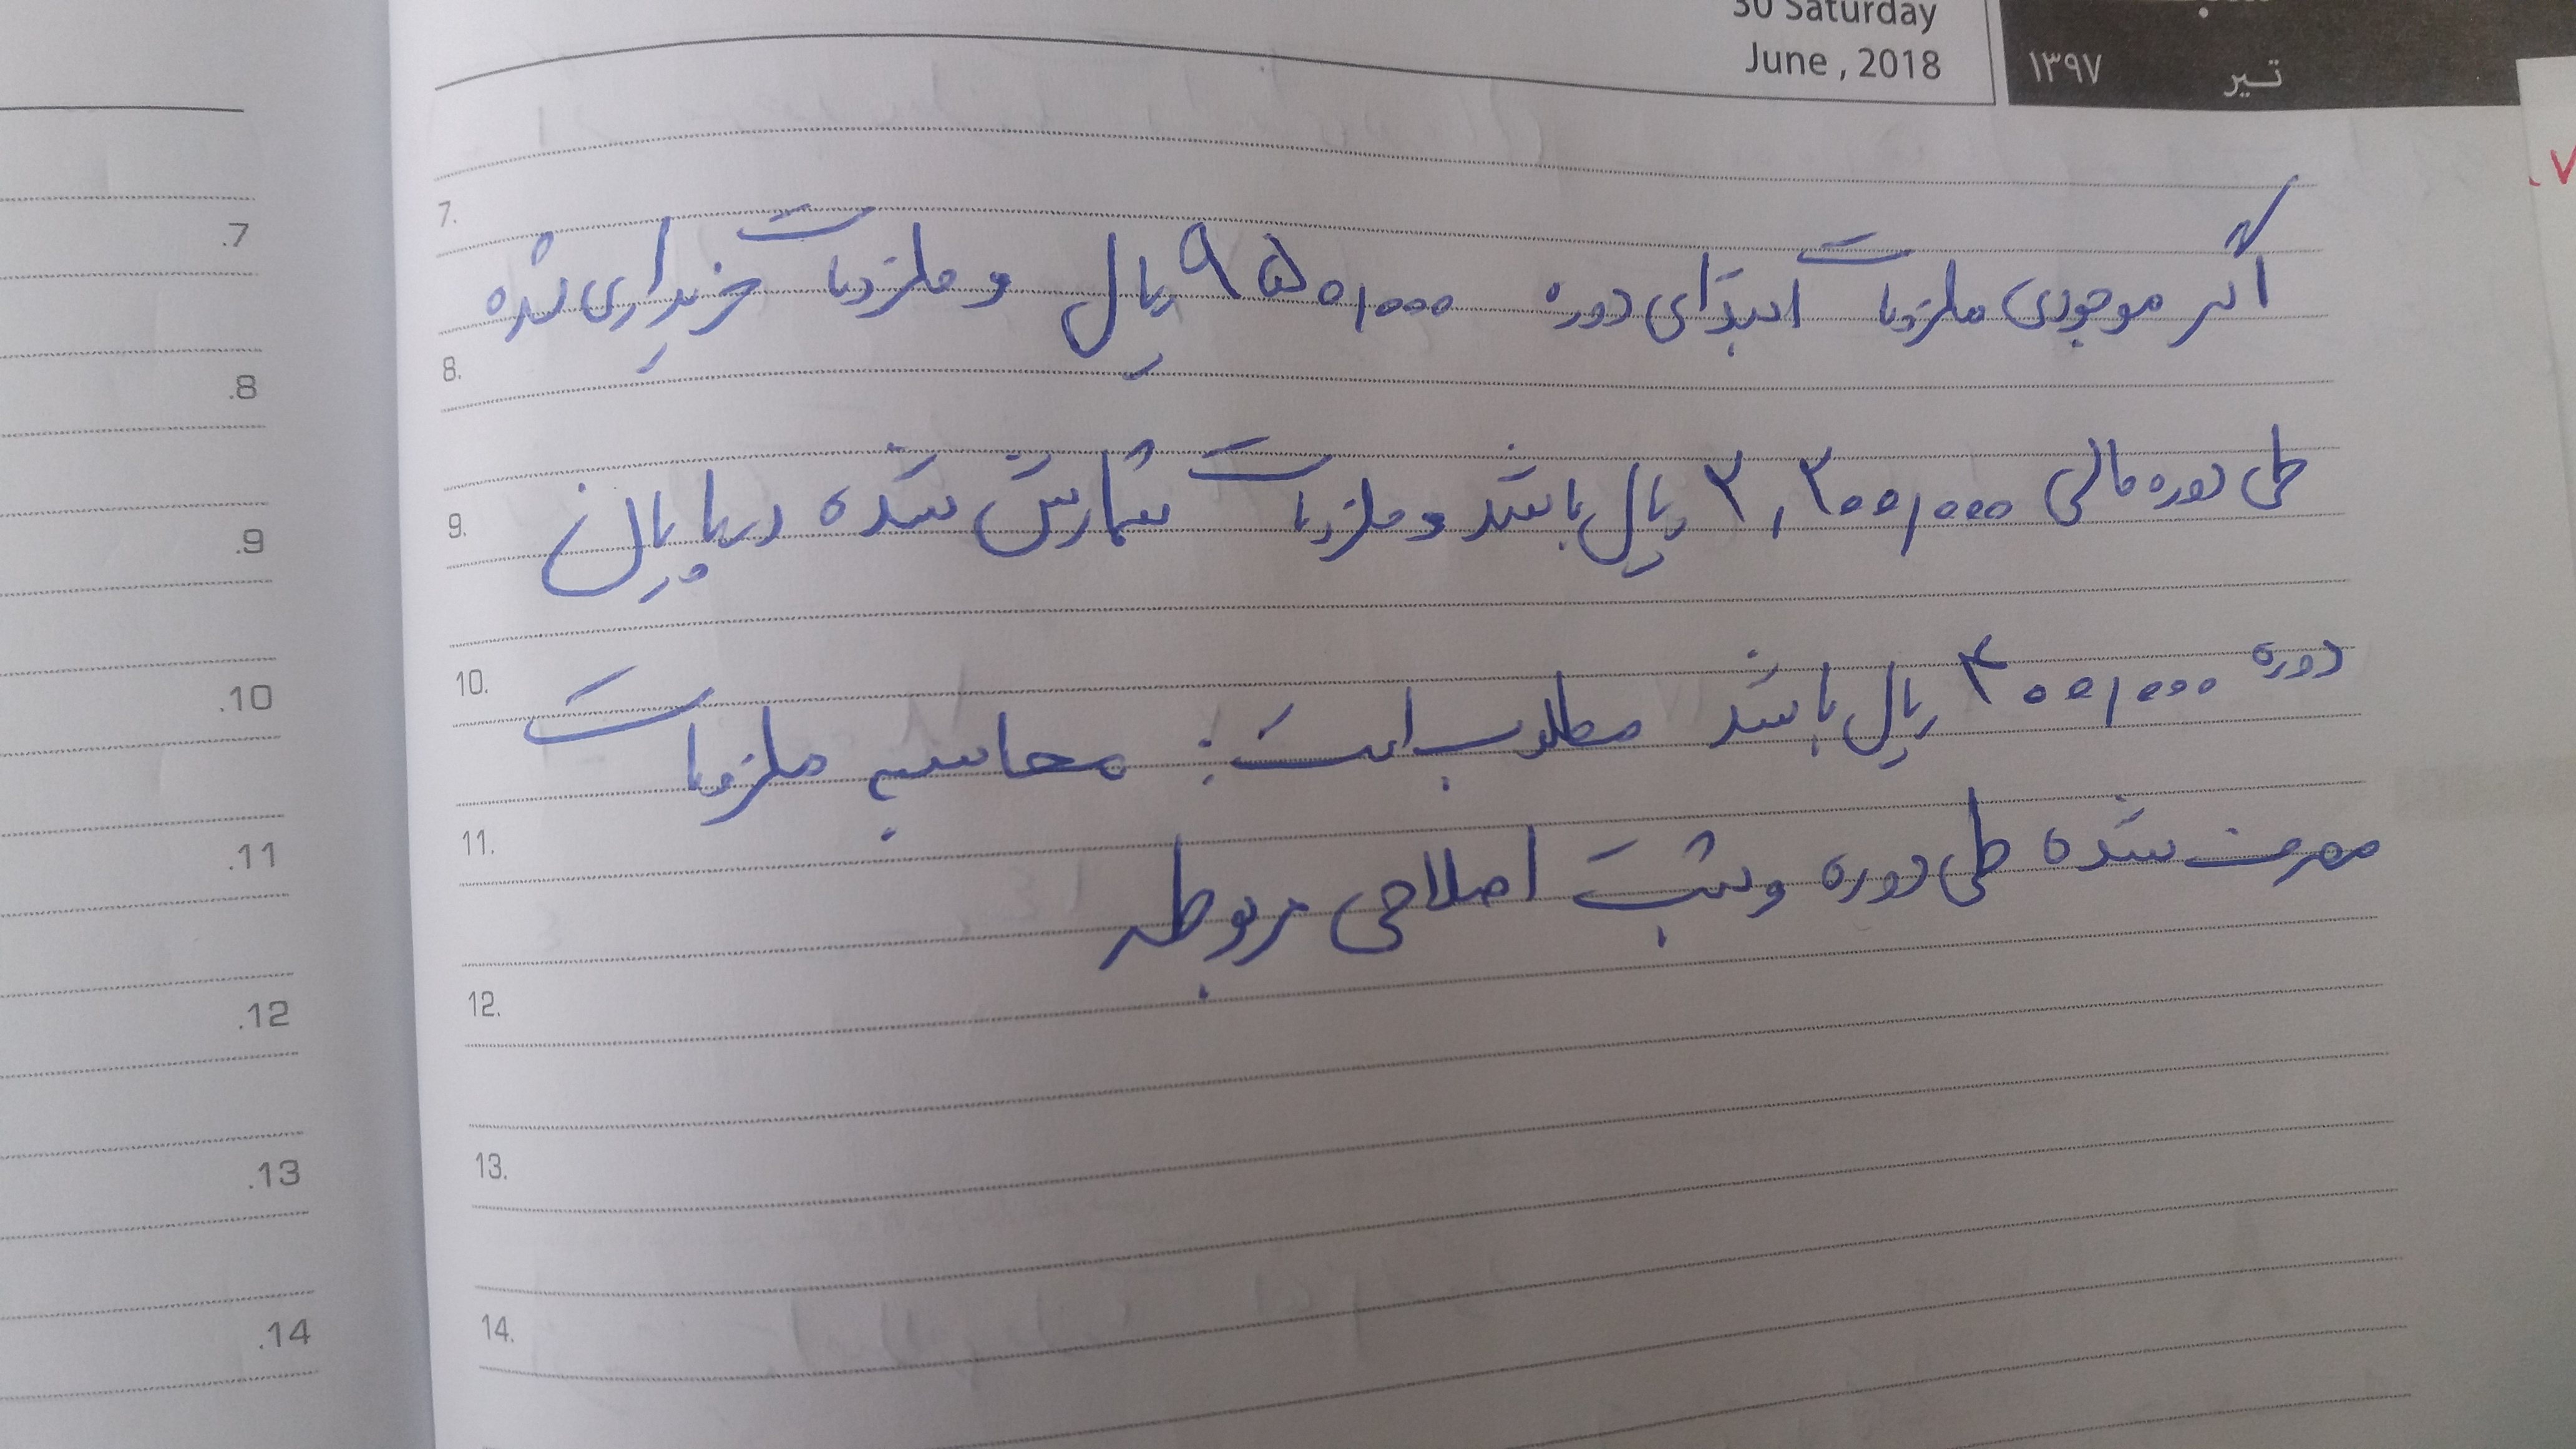 30 Saturday
June , 2018
تیر ۱۳۹۷
7.
اگر موجودی ملزومات ابتدای دوره ۹۵۰,۰۰۰ ریال و ملزومات خریداری شده
8.
طی دوره مالی ۳,۳۰۰,۰۰۰ ریال باشد و ملزومات شمارش شده در پایان
9.
دوره ۳۰۰,۰۰۰ ریال باشد مطلوب است: محاسبه ملزومات
10.
مصرف شده طی دوره و ثبت اصلاحی مربوطه
11.
12.
13.
14.
.7
.8
.9
.10
.11
.12
.13
.14